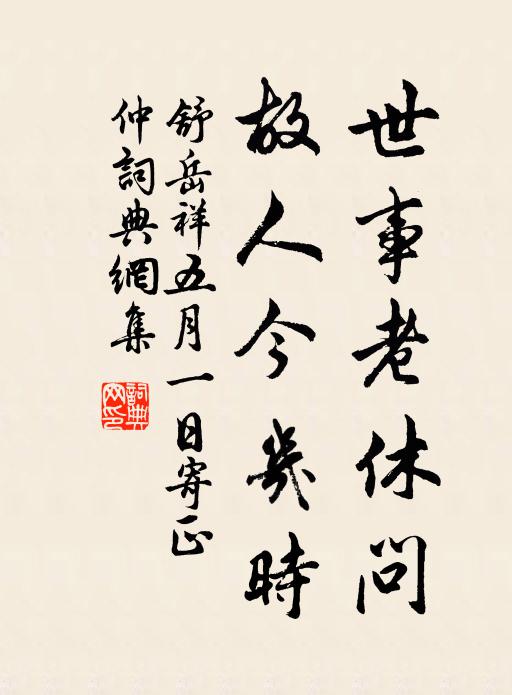 世事老休問
故人今幾時
舒岳祥五月一日寄正
仲詞典網集
詞典網印